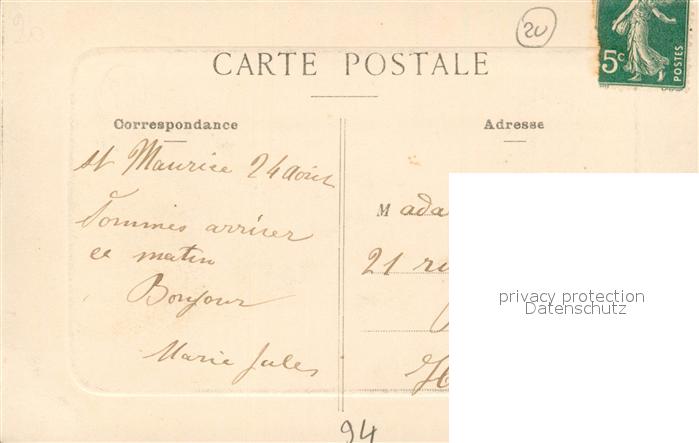 20
20
5c
POSTES
CARTE POSTALE
Correspondance
Adresse
st Maurice 24 août
Sommes arriver
ce matin
Bonjour
Marie Jules
Mada
21 ru
privacy protection
Datenschutz
94